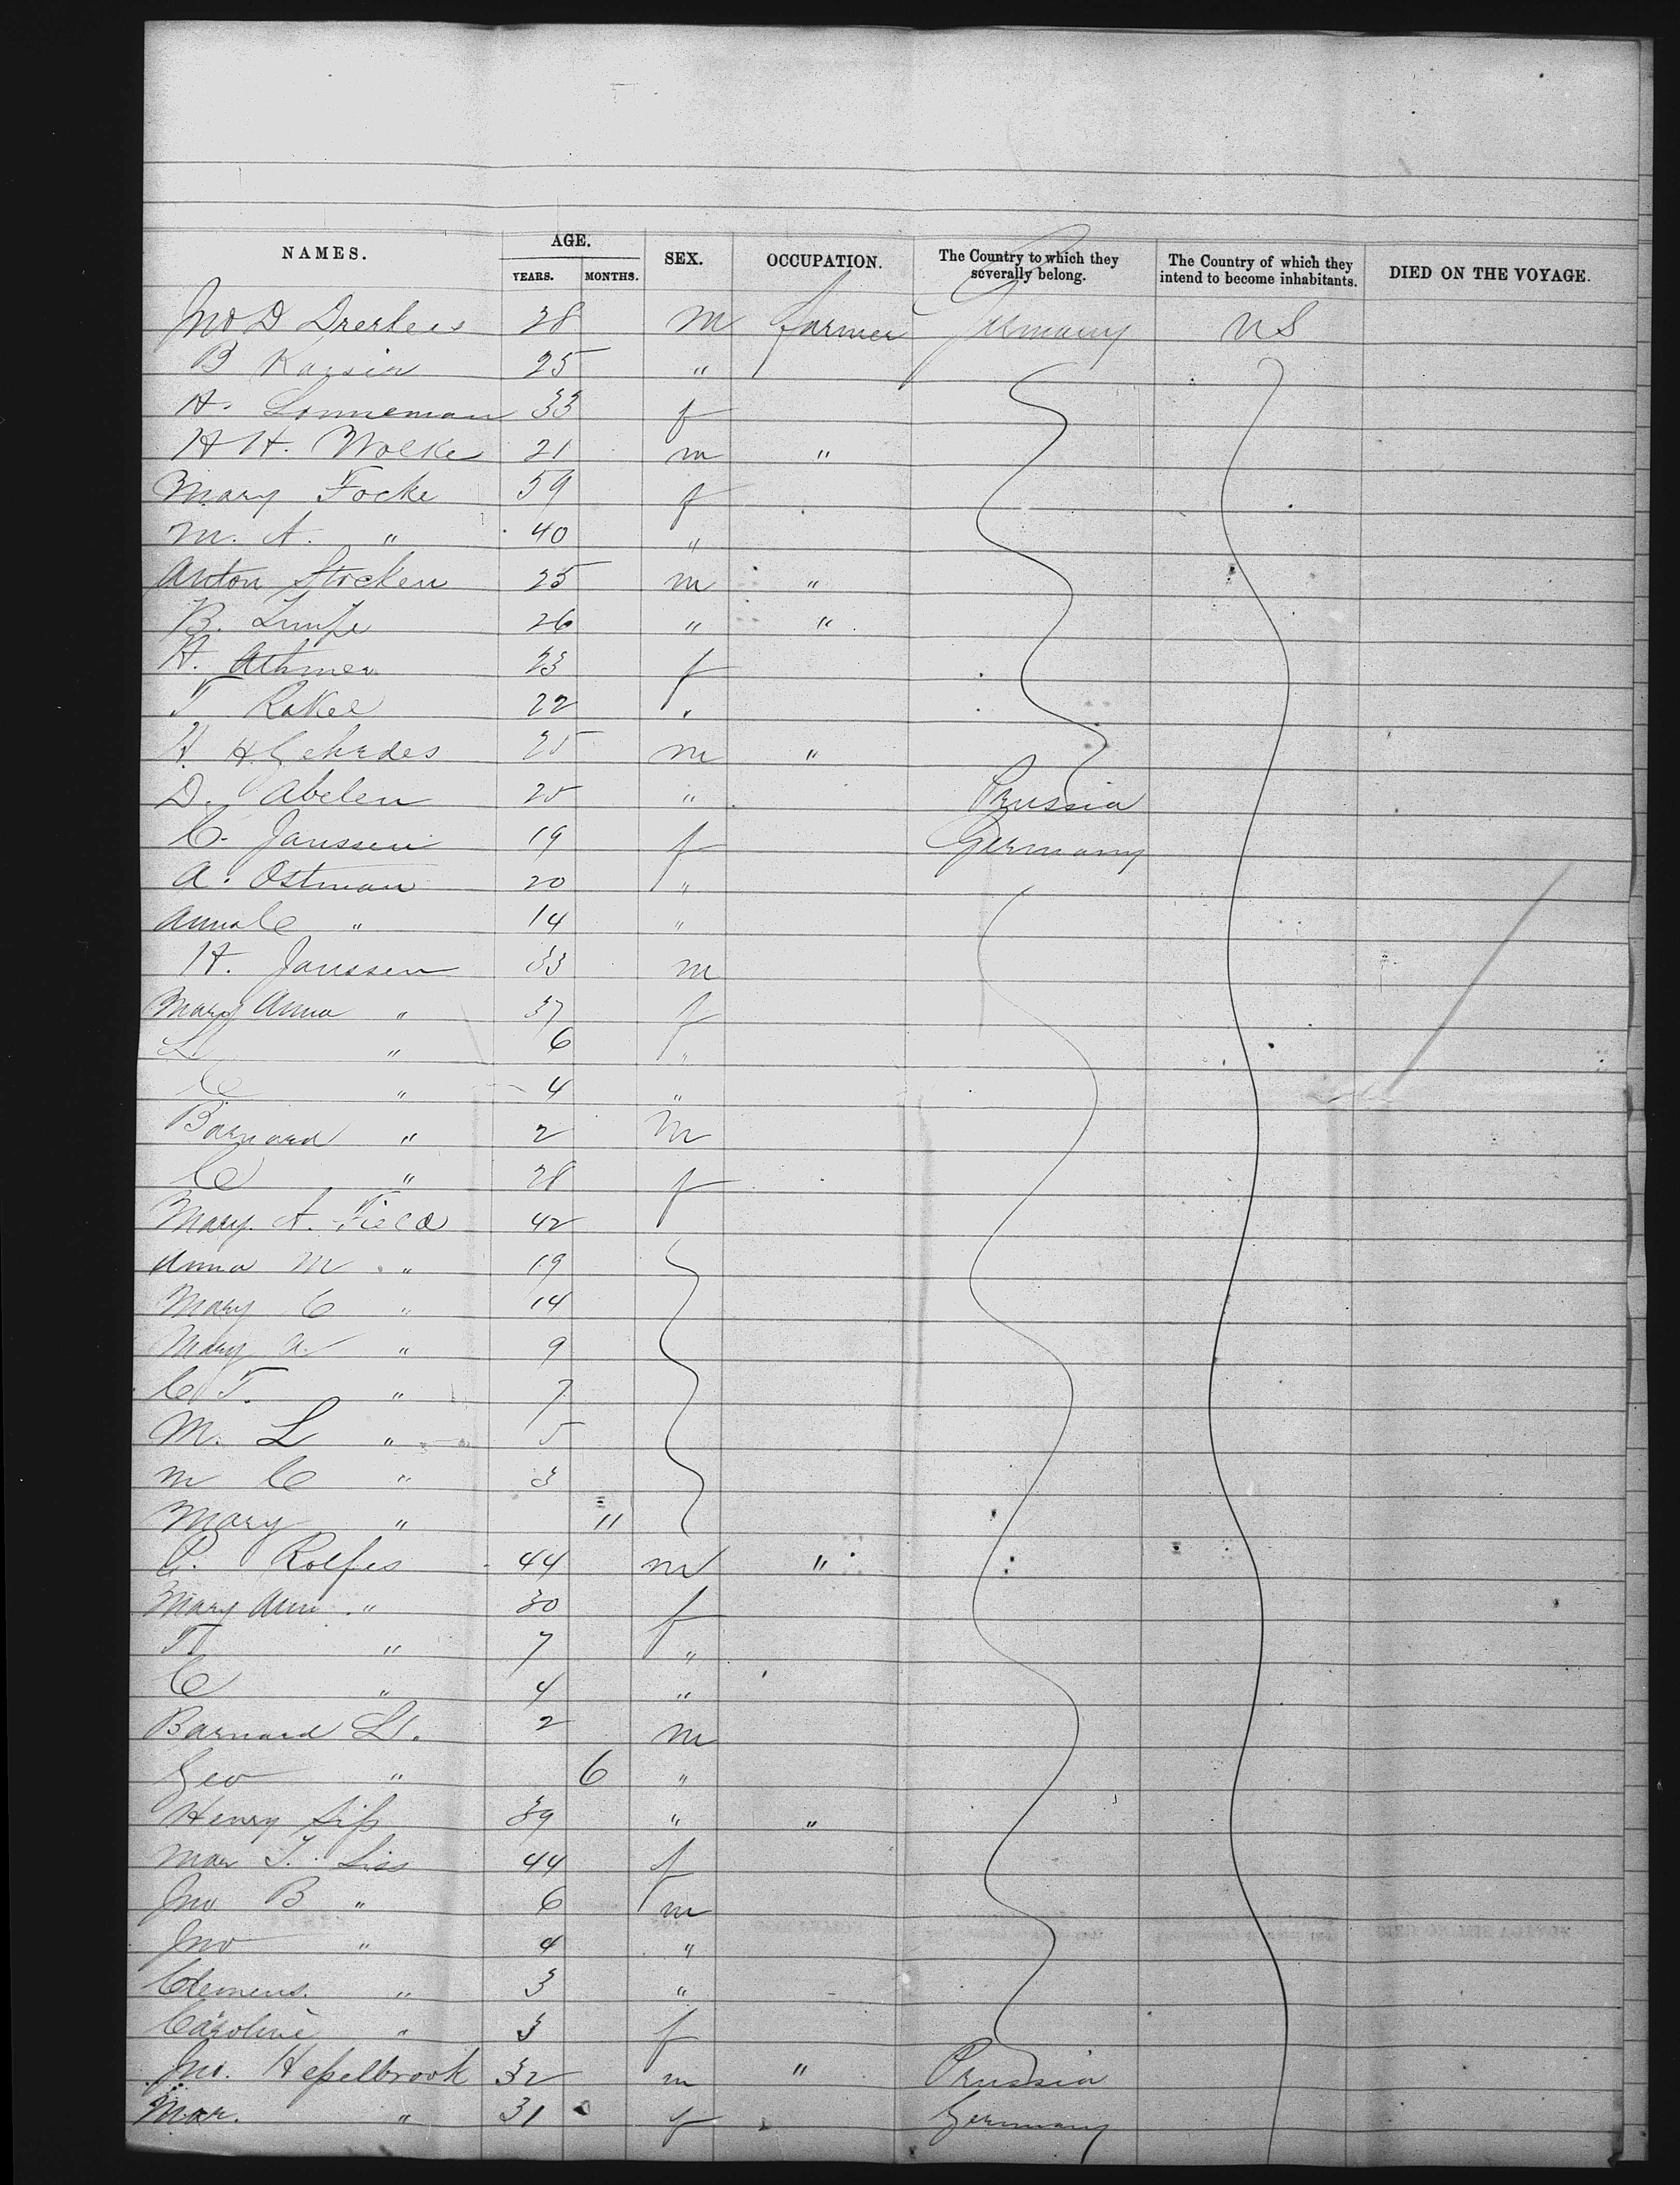 NAMES. AGE. SEX. OCCUPATION. The Country to which they severally belong. The Country of which they intend to become inhabitants. DIED ON THE VOYAGE.
YEARS. MONTHS.
Jno D 28 m farmer Germany US
B 25 "
H. Lonneman 33 f
H H. Wolke 21 m "
Mary Focke 59 f
M. A. " 40 "
Anton Stocken 25 m "
B. 26 " "
H. Athmer 23 f
T Rakel 22 "
H. H Gehrdes 25 m "
D. Abelen 25 " Prussia
C. Janssen 19 f Germany
A. Ostman 20 "
Anna C " 14 "
H. Janssen 33 m
Mary Anna " 37 f
L " 6 "
C " 4 "
Barnard " 2 m
C " 28 f
Mary A. 42
Anna M " 19
Mary C " 14
Mary A. " 9
C T. " 7
M. L " 5
M C " 3
Mary " 11
C. Rolfes 44 m "
Mary Ann " 30 f
T " 7 "
C " 4 "
Barnard 2 m
Geo " 6 "
Henry Siſs 39 " "
Mar T. Siss 44 f
Jno B " 6 m
Jno " 4 "
Clemens. " 3 "
Caroline " 3 f
Jno. Heſselbrook 32 m " Prussia
Mar. " 31 f Germany